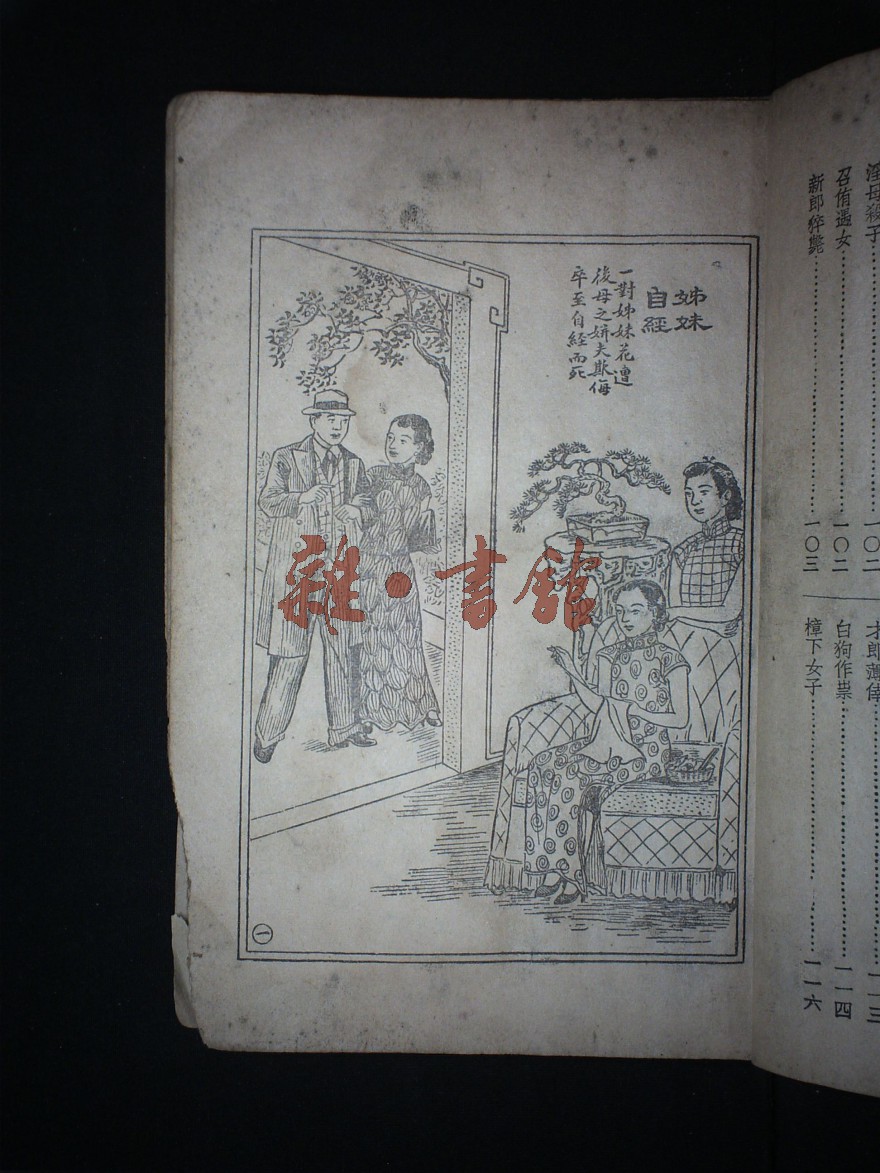 姊妹
自經
一對姊妹花遭
後母之姘夫欺侮
卒至自經而死
雜·書館
一
淫母殺子…一〇二
召侑遇女…一〇二
新郎猝斃…一〇三
才郎薄倖…一一三
白狗作祟…一一四
樟下女子…一一六